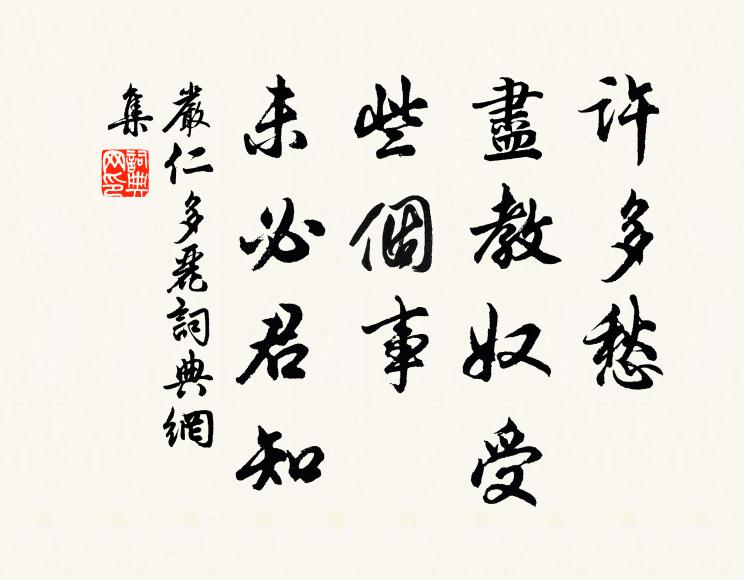 許多愁
盡教奴受
些個事
未必君知
嚴仁多麗詞典網
集
詞典网印